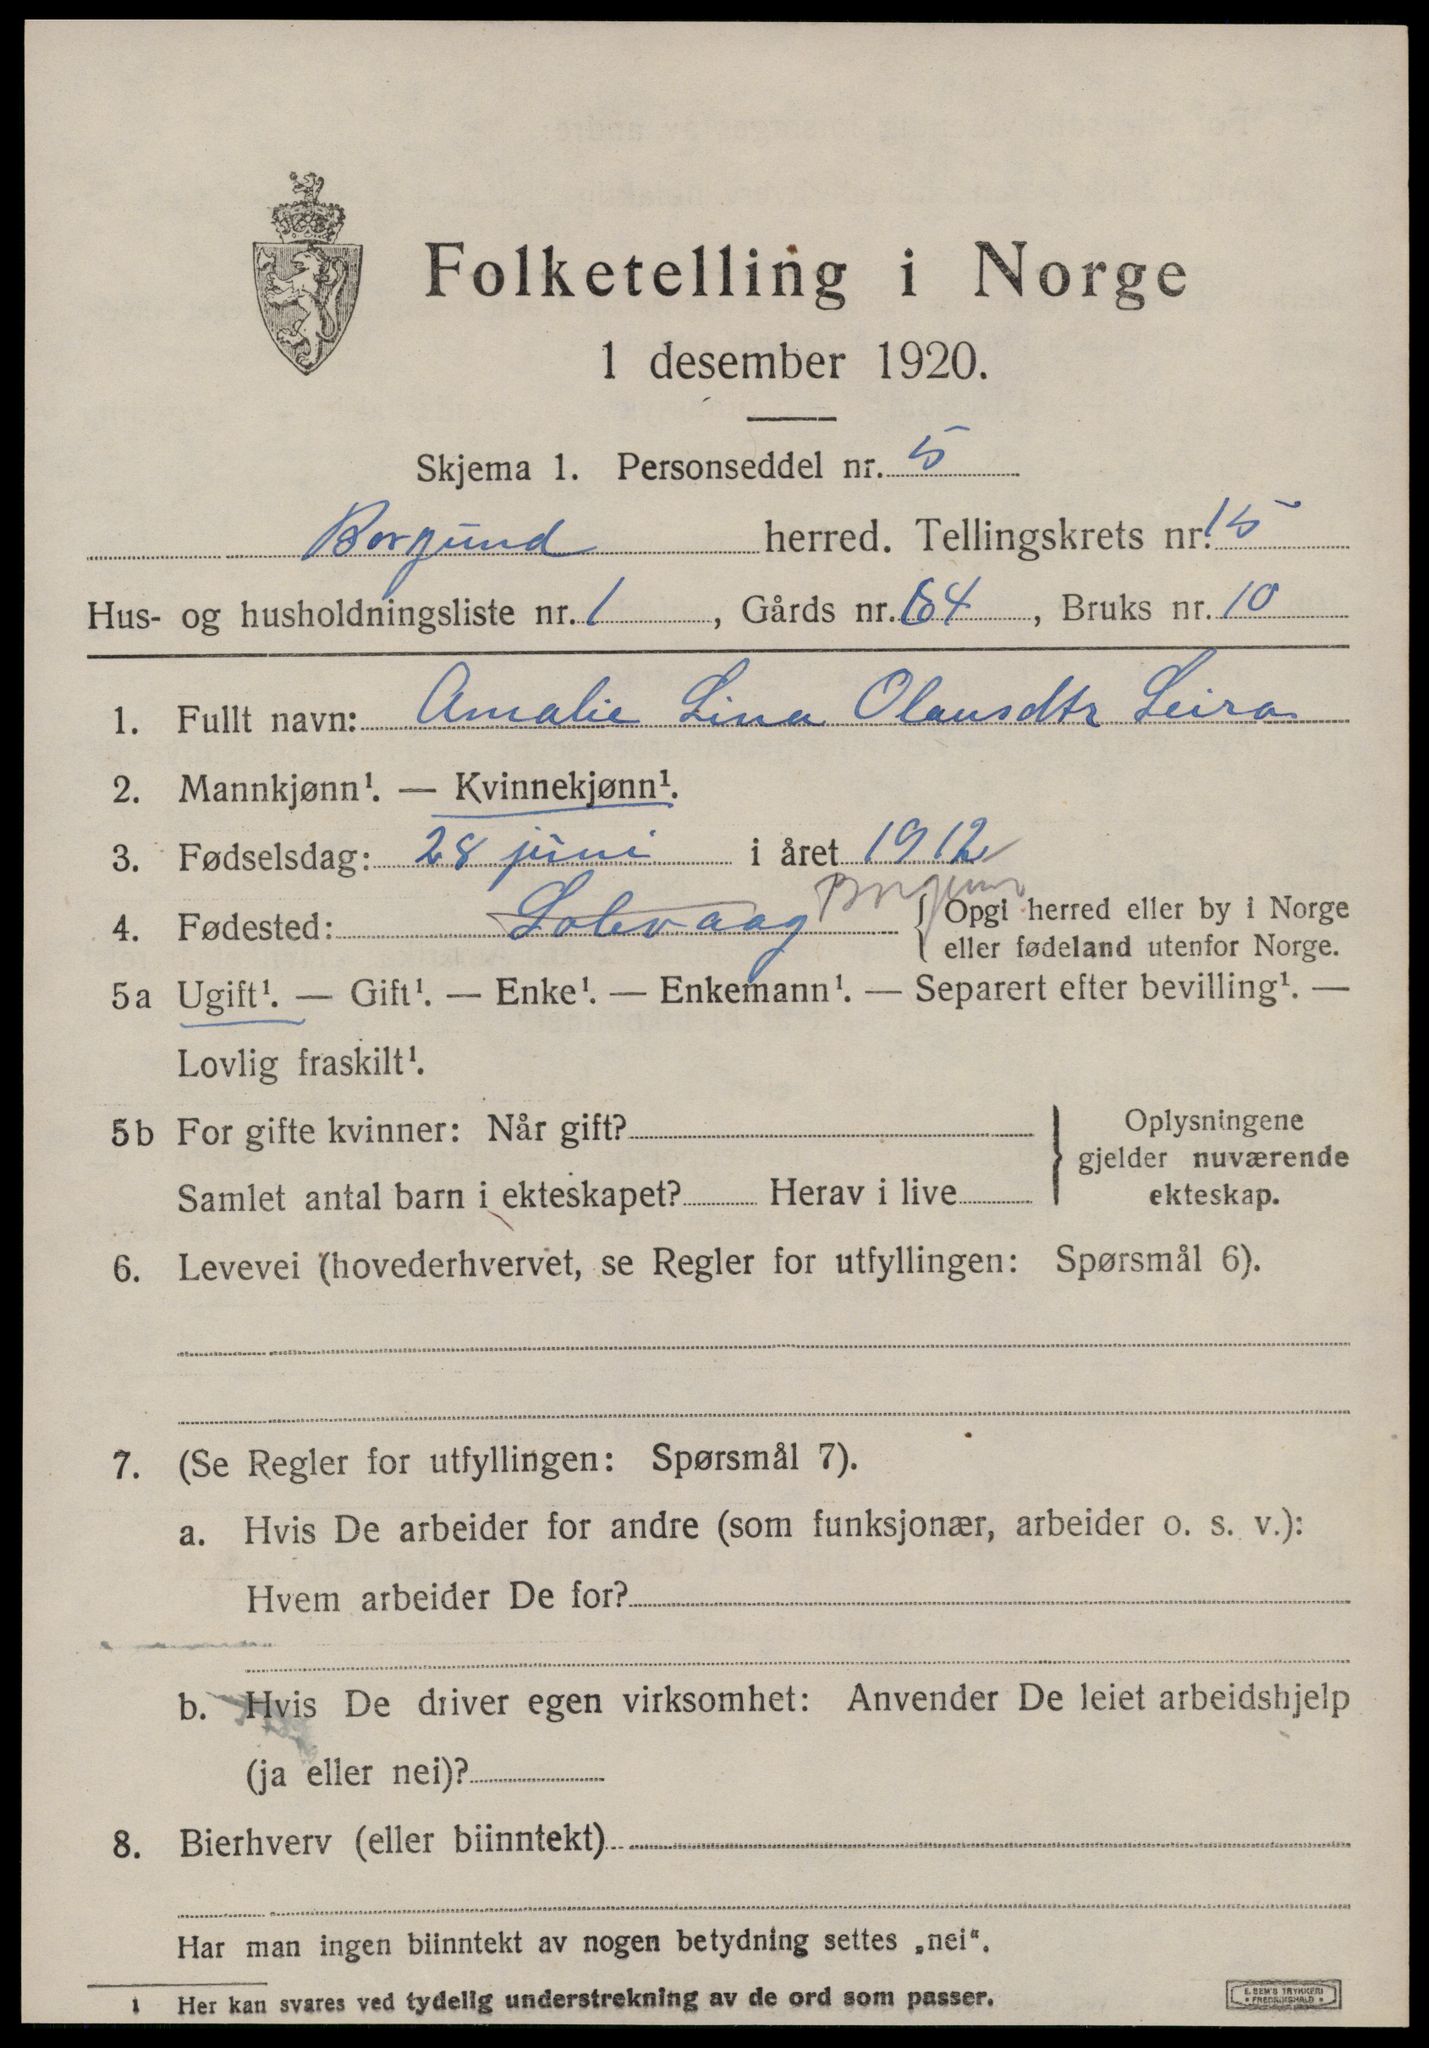 Folketelling i Norge
1 desember 1920.
Skjema 1. Personseddel nr. 5
Borgund herred. Tellingskrets nr. 15
Hus- og husholdningsliste nr. 1, Gårds nr. 64, Bruks nr. 10
1. Fullt navn: Amalie Lina Olausdtr Leira
2. Mannkjønn¹. — Kvinnekjønn¹.
3. Fødselsdag: 28 juni i året 1912
4. Fødested: Solevaag Borgund { Opgi herred eller by i Norge
eller fødeland utenfor Norge.
5a Ugift¹. — Gift¹. — Enke¹. — Enkemann¹. — Separert efter bevilling¹. —
Lovlig fraskilt¹.
5b For gifte kvinner: Når gift?
Samlet antal barn i ekteskapet? Herav i live
Oplysningene
gjelder nuværende
ekteskap.
6. Levevei (hovederhvervet, se Regler for utfyllingen: Spørsmål 6).
7. (Se Regler for utfyllingen: Spørsmål 7).
a. Hvis De arbeider for andre (som funksjonær, arbeider o. s. v.):
Hvem arbeider De for?
b. Hvis De driver egen virksomhet: Anvender De leiet arbeidshjelp
(ja eller nei)?
8. Bierhverv (eller biinntekt)
Har man ingen biinntekt av nogen betydning settes „nei“.
1 Her kan svares ved tydelig understrekning av de ord som passer.
E. SEM'S TRYKKERI
FREDRIKSHALD